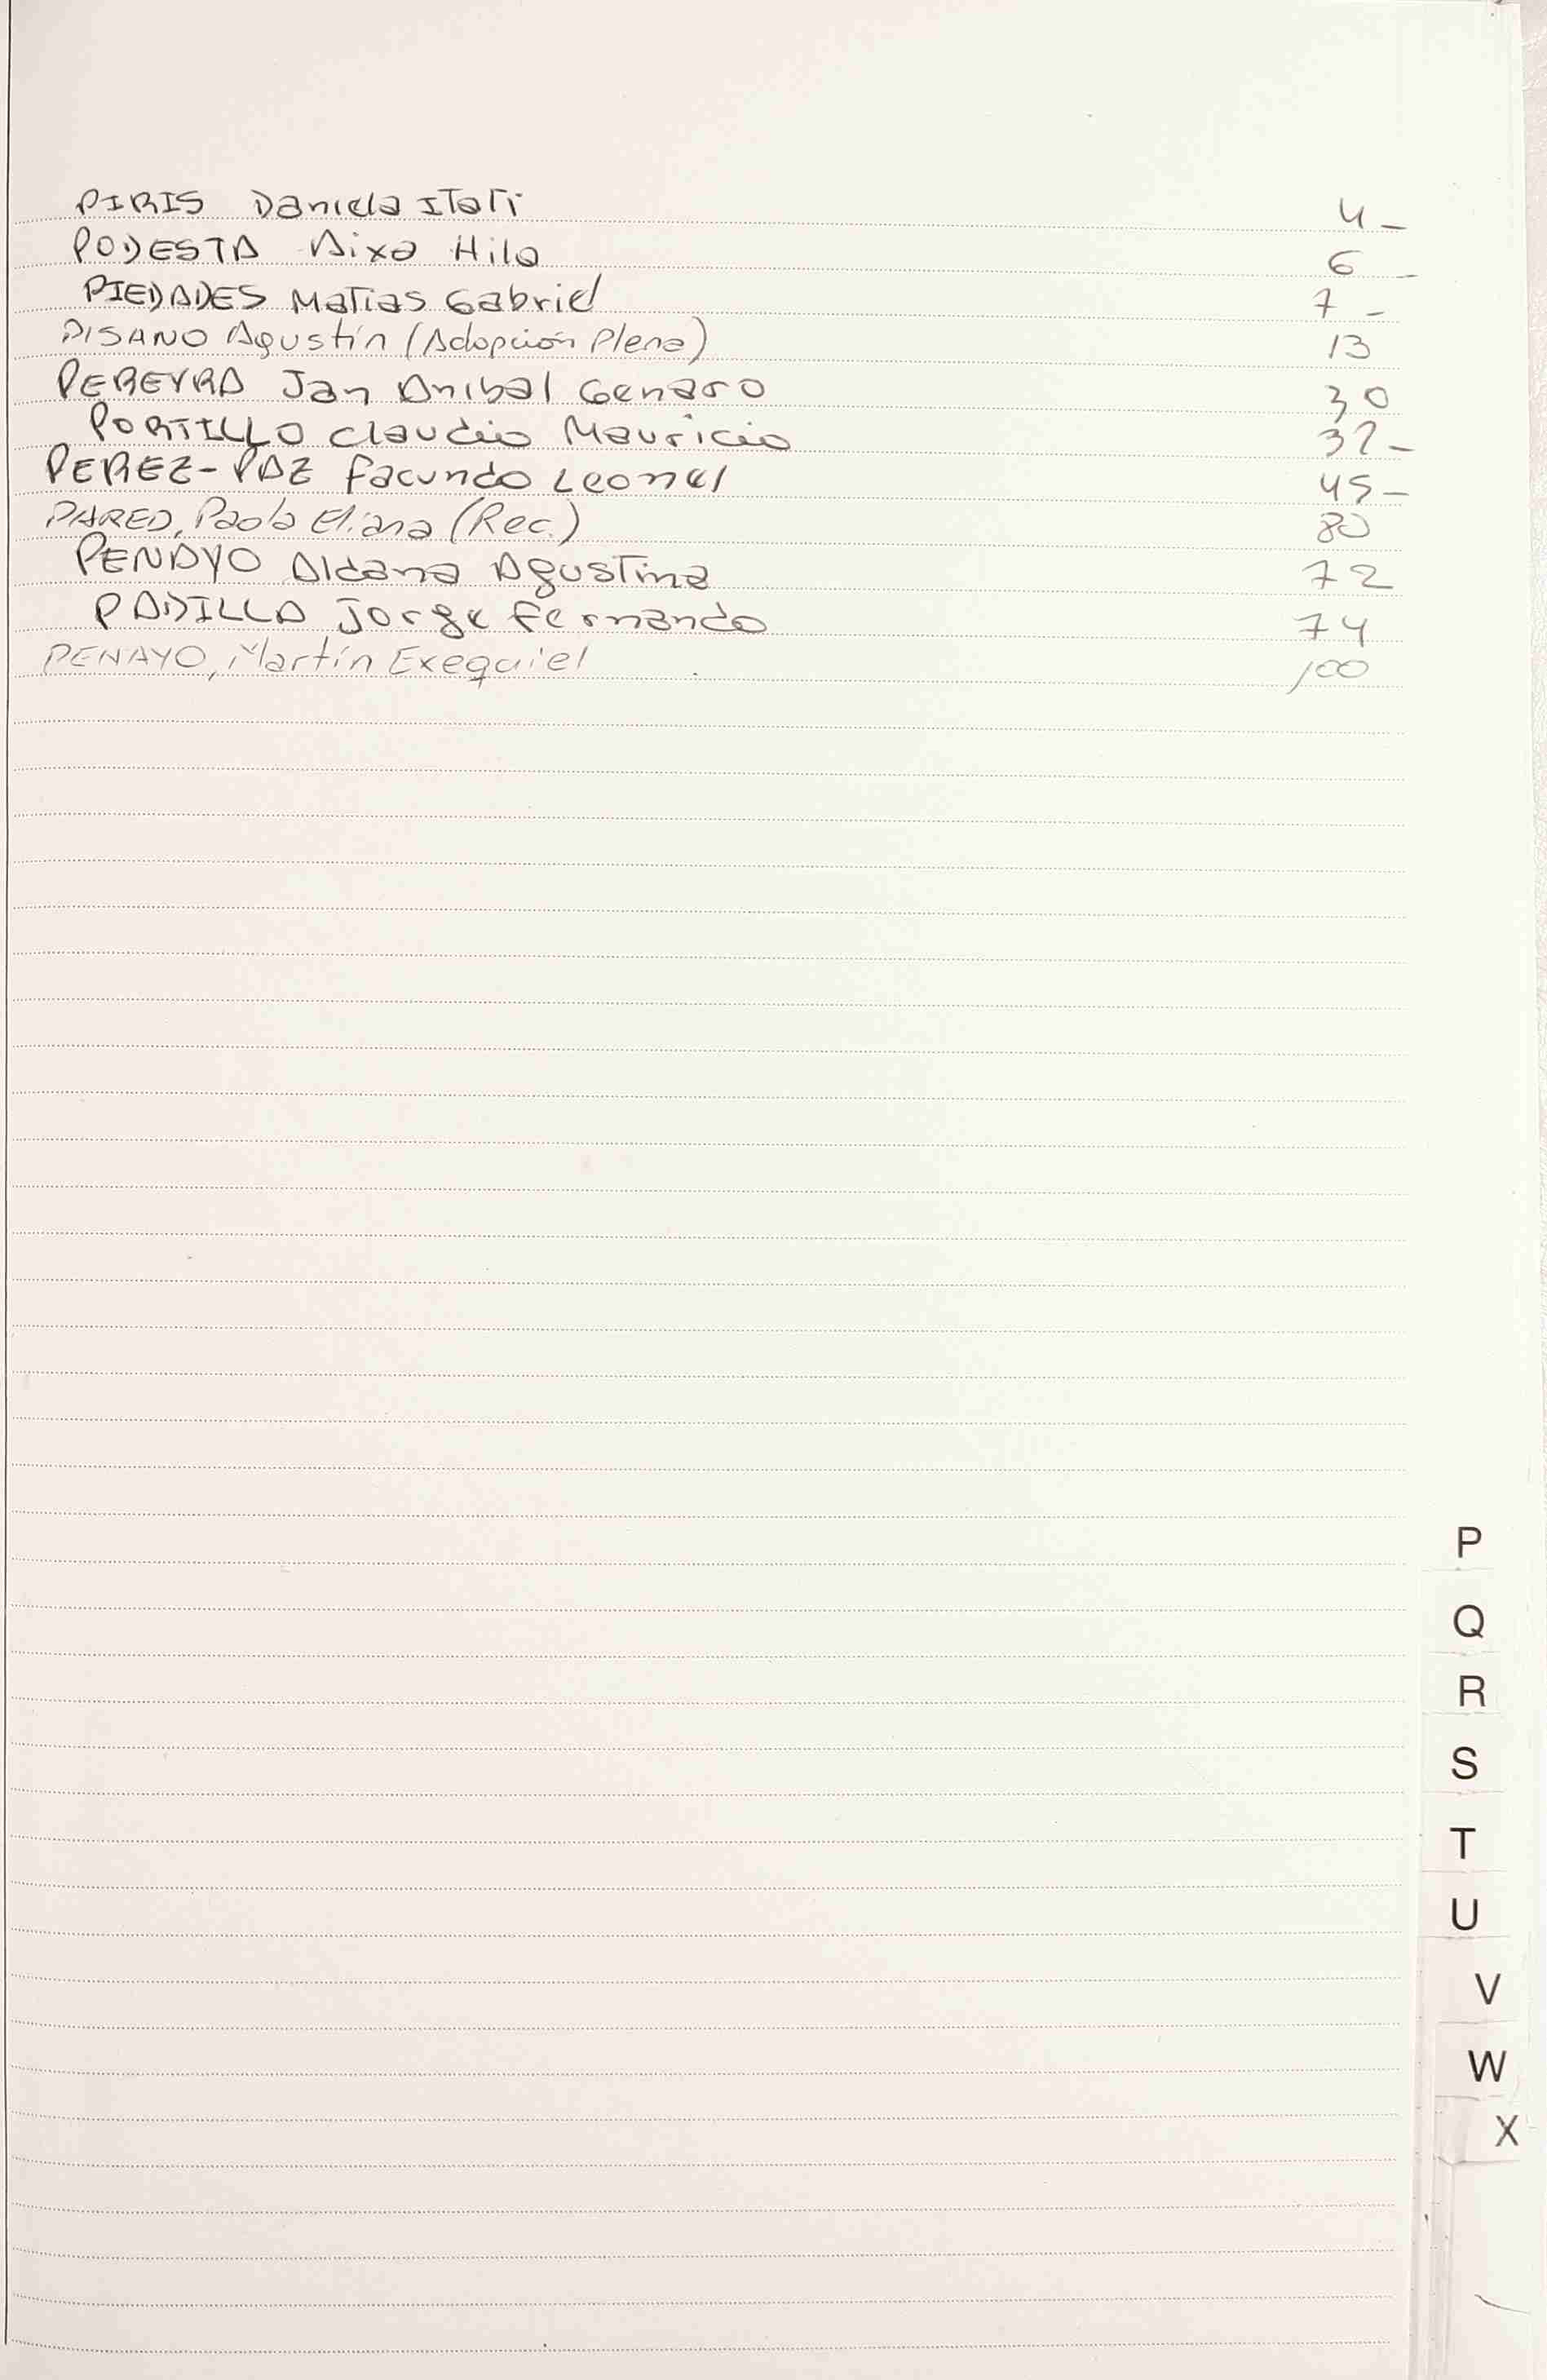 PIRIS Daniela ITaTi 4-
PODESTA Aixa Hila 6-
PIEDADES MaTias Gabriel 7-
PISANO Agustín (Adopción Plena) 13
PEREYRA Jan Anibal Genaro 30
PORTILLO Claudio Mauricio 32-
PEREZ-PAZ facundo Leonel 45-
PARED, Paola Eliana (Rec.) 80
PENAYO Aldana AgusTina 72
PADILLA Jorge fernando 74
PENAYO, Martín Exequiel 100
P
Q
R
S
T
U
V
W
X